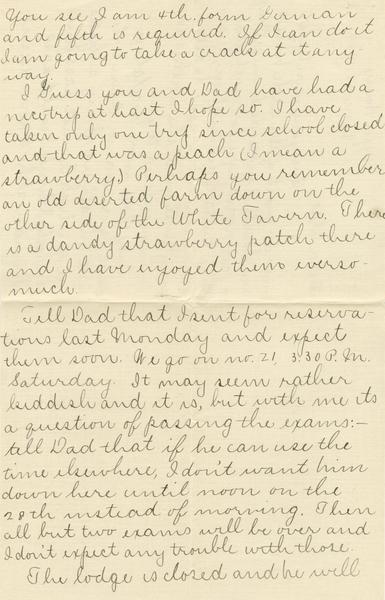 You see I am 4th. form German
and fifth is required. If I can do it
I am going to take a crack at it any-
way.
I guess you and Dad have had a
nice trip at least I hope so. I have
taken only one trip since school closed
and that was a peach (I mean a
strawberry.) Perhaps you remember
an old deserted farm down on the
other side of the White Tavern. There
is a dandy strawberry patch there
and I have injoyed them everso-
much.
Tell Dad that I sent for reserva-
tions last Monday and expect
them soon. We go on no. 21, 3:30 P.M.
Saturday. It may seem rather
kiddish and it is, but with me its
a question of passing the exams:—
tell Dad that if he can use the
time elsewhere, I don't want him
down here until noon on the
28th instead of morning. Then
all but two exams will be over and
I don't expect any trouble with those.
The lodge is closed and he will